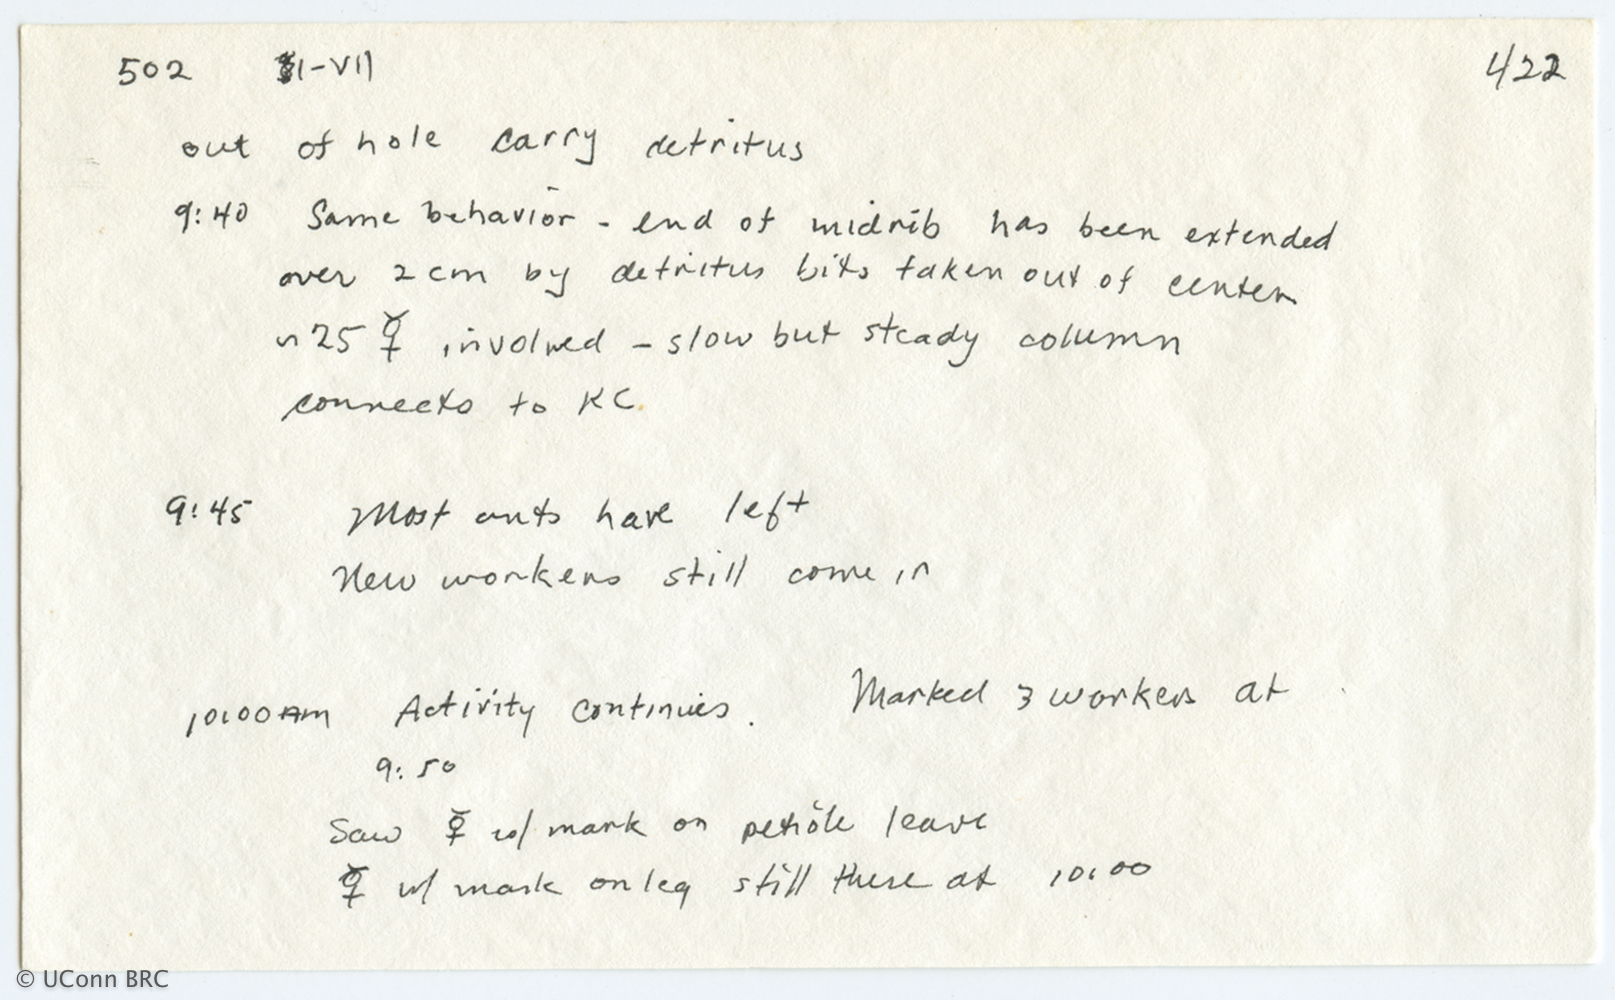 502 I-VII 4/22
out of hole carry detritus
9:40 Same behavior - end of midrib has been extended
over 2 cm by detritus bits taken out of center
~25 ☿ involved - slow but steady column
connects to KC.
9:45 Most ants have left
New workers still come in
10:00 AM Activity continues. Marked 3 workers at
9:50
Saw ☿ w/ mark on petiole leave
☿ w/ mark on leg still there at 10:00
© UConn BRC